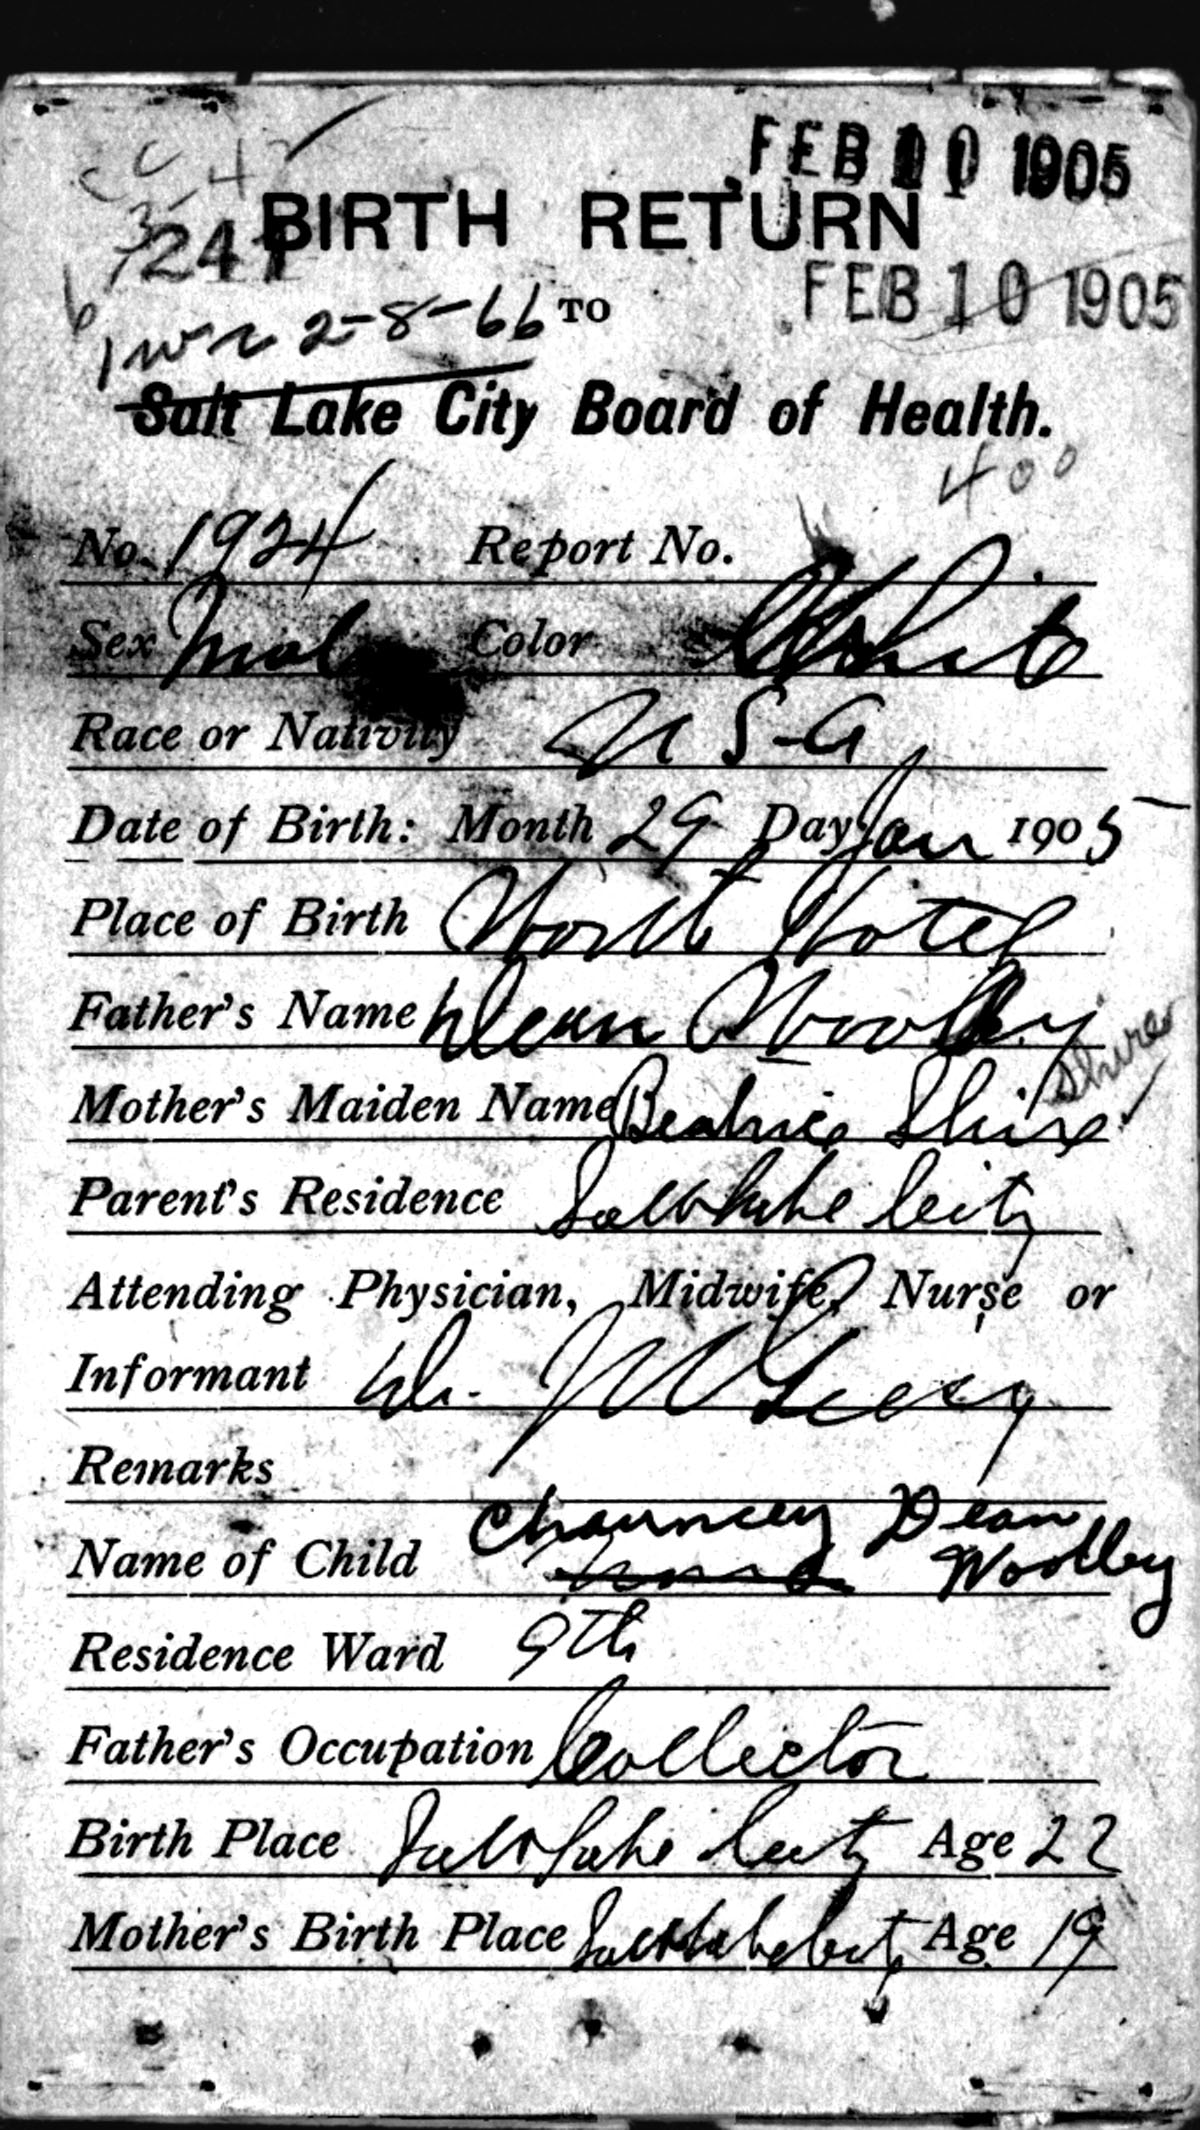 FEB 10 1905
BIRTH RETURN
FEB 10 1905
2-8-66 TO
Salt Lake City Board of Health.
400
No. 1924 Report No.
Sex Mal Color White
Race or Nativity U S A
Date of Birth: Month 29 Day Jan 1905
Place of Birth North Hotel
Father's Name Dean Woolley
Shires
Mother's Maiden Name Beatrice Shire
Parent's Residence Salt Lake City
Attending Physician, Midwife, Nurse or
Informant Dr.
Remarks
Chauncey Dean
Name of Child Woolley
Residence Ward 9th
Father's Occupation Collector
Birth Place Salt Lake City Age 22
Mother's Birth Place Salt Lake City Age 19